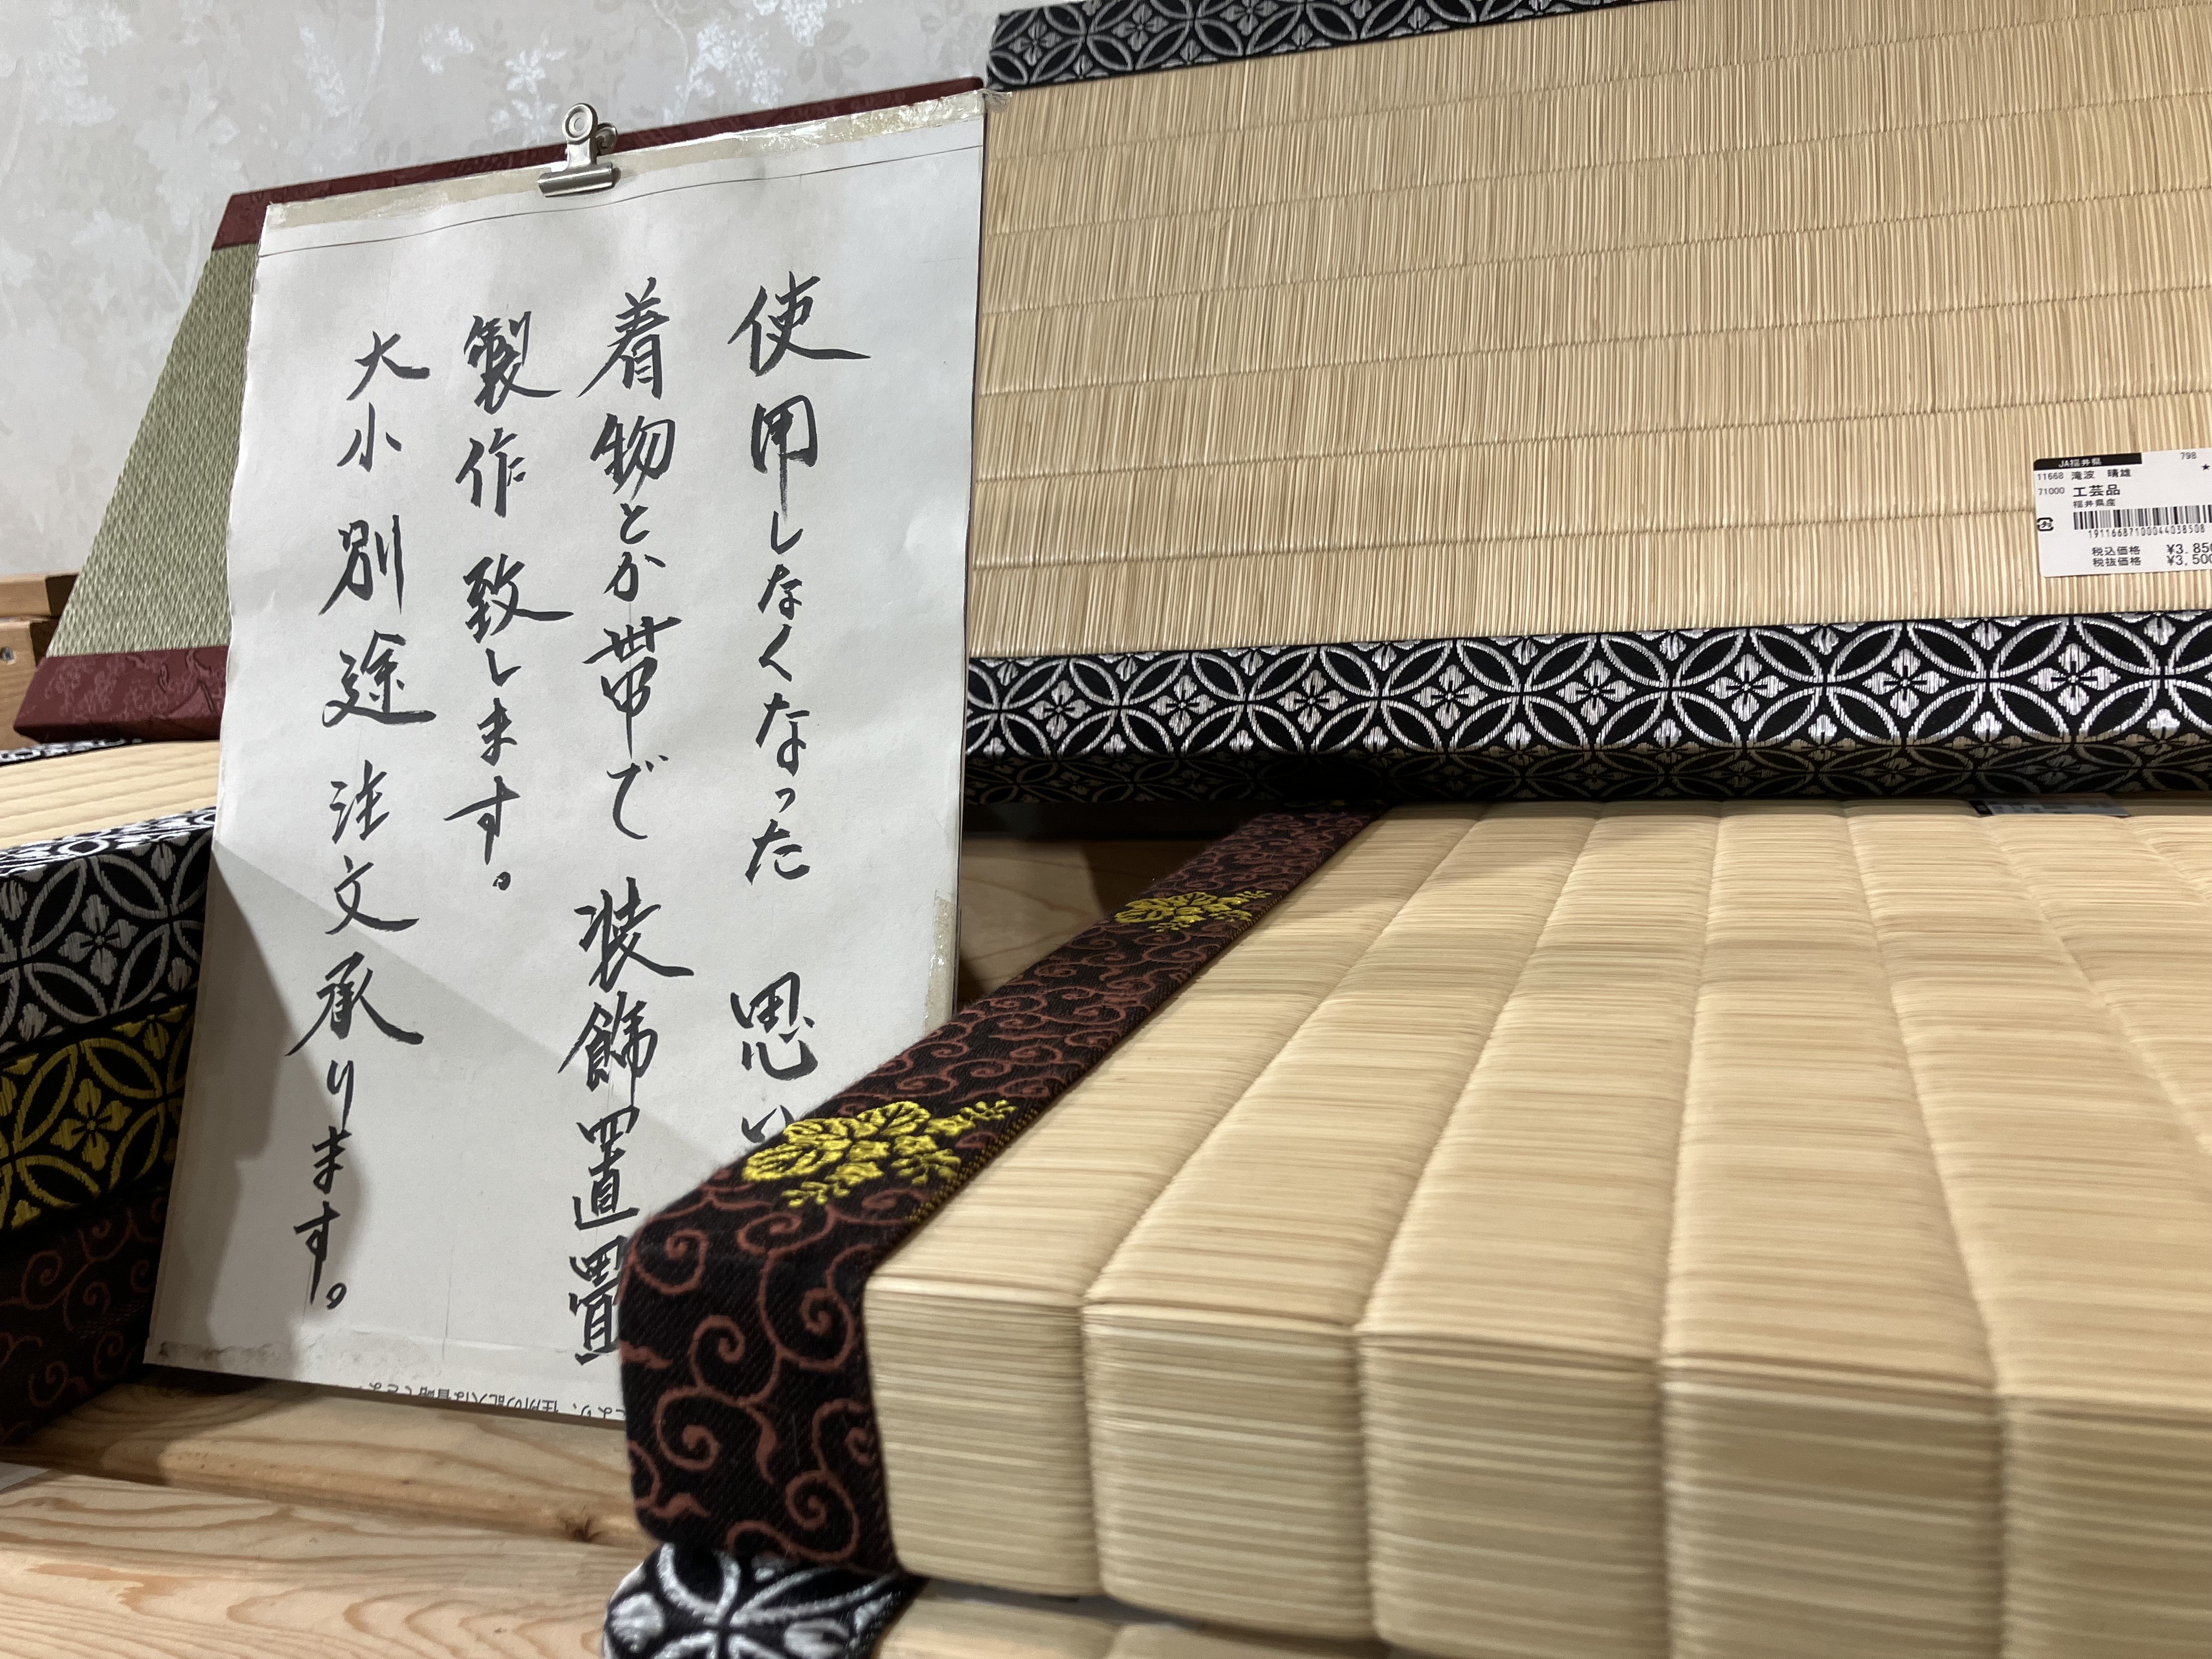 使用しなくなった 思い
着物とか帯で 装飾置畳
製作致します。
大小別途注文承ります。
JA福井県
798
11668 滝波 晴雄
71000 工芸品
福井県産
19116687100044038508
税込価格 ¥3,850
税抜価格 ¥3,500